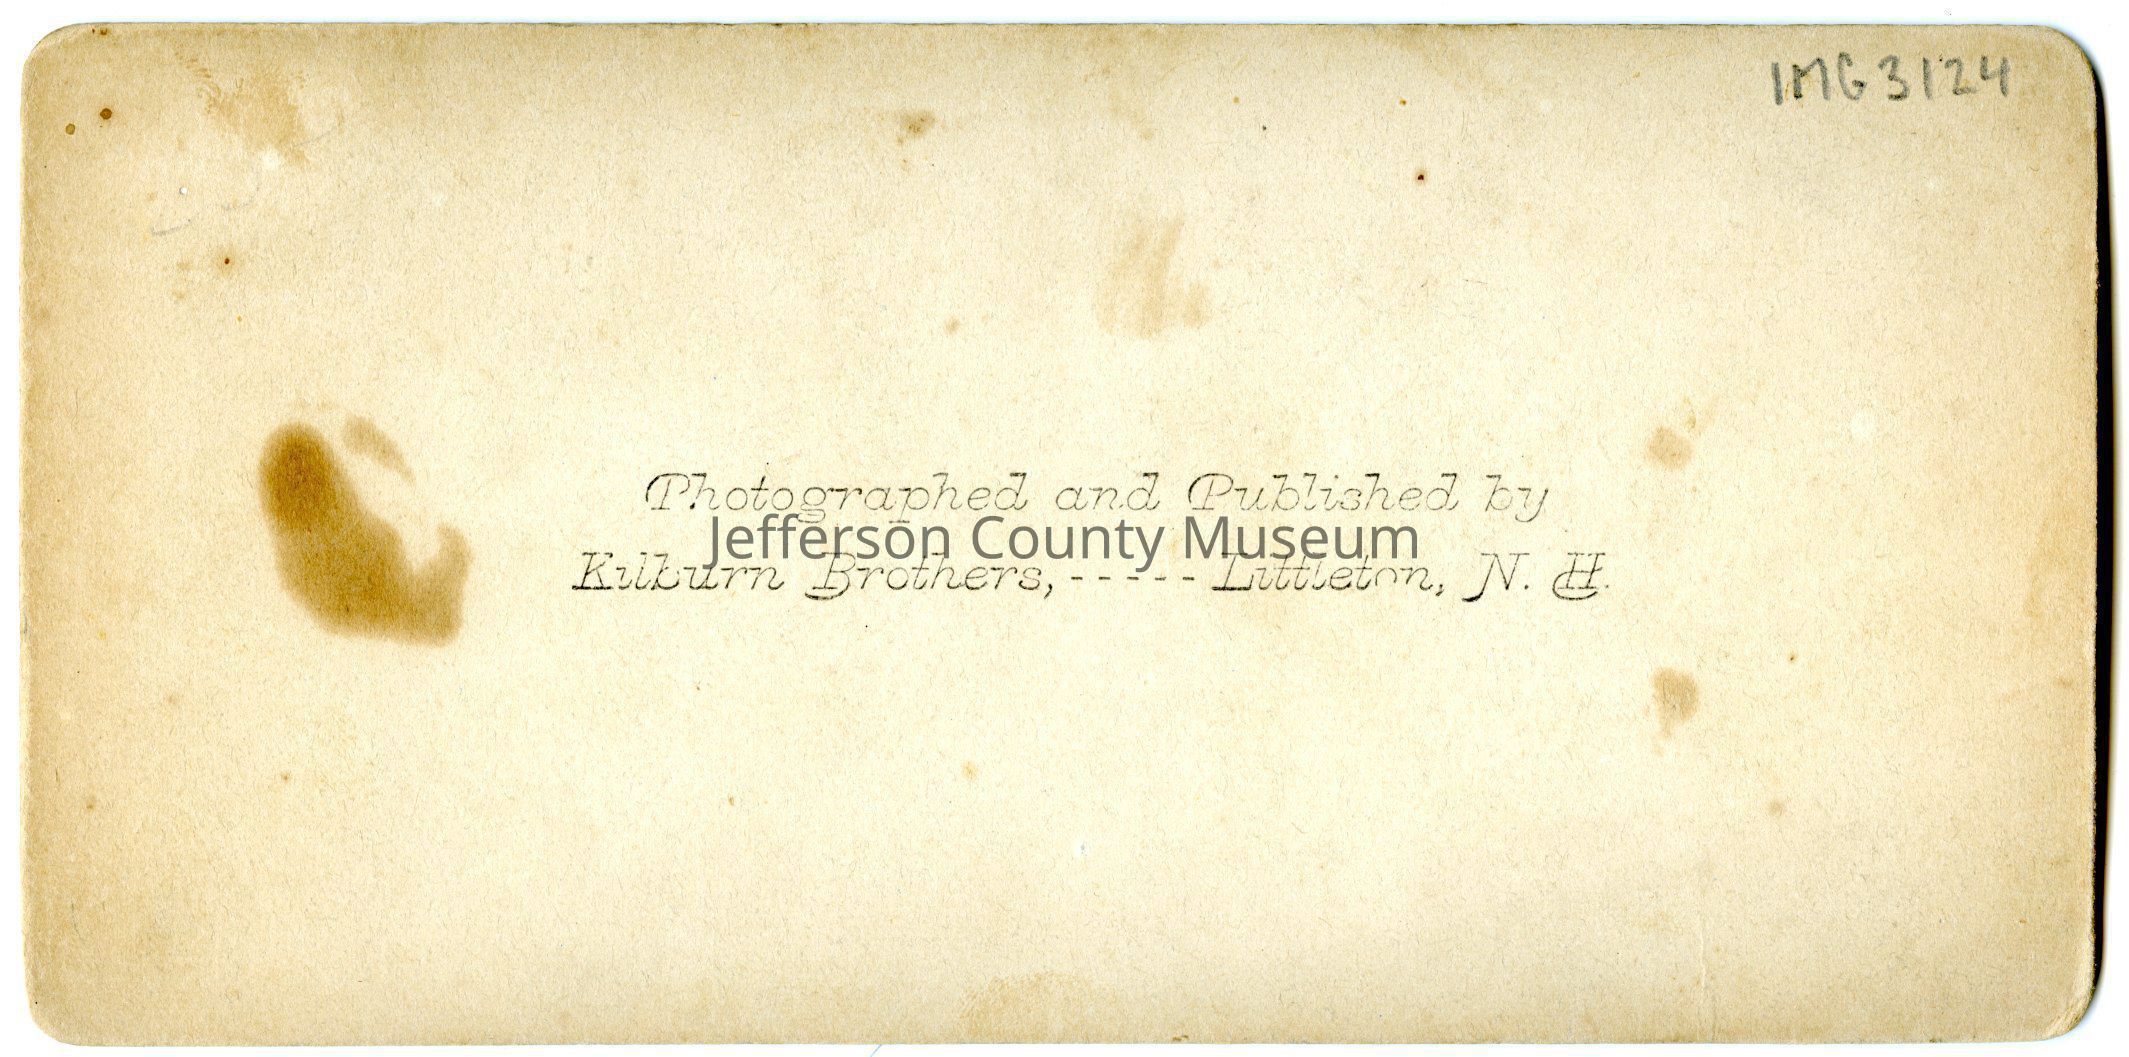 IMG3124
Photographed and Published by
Jefferson County Museum
Kilburn Brothers, ----- Littleton, N. H.